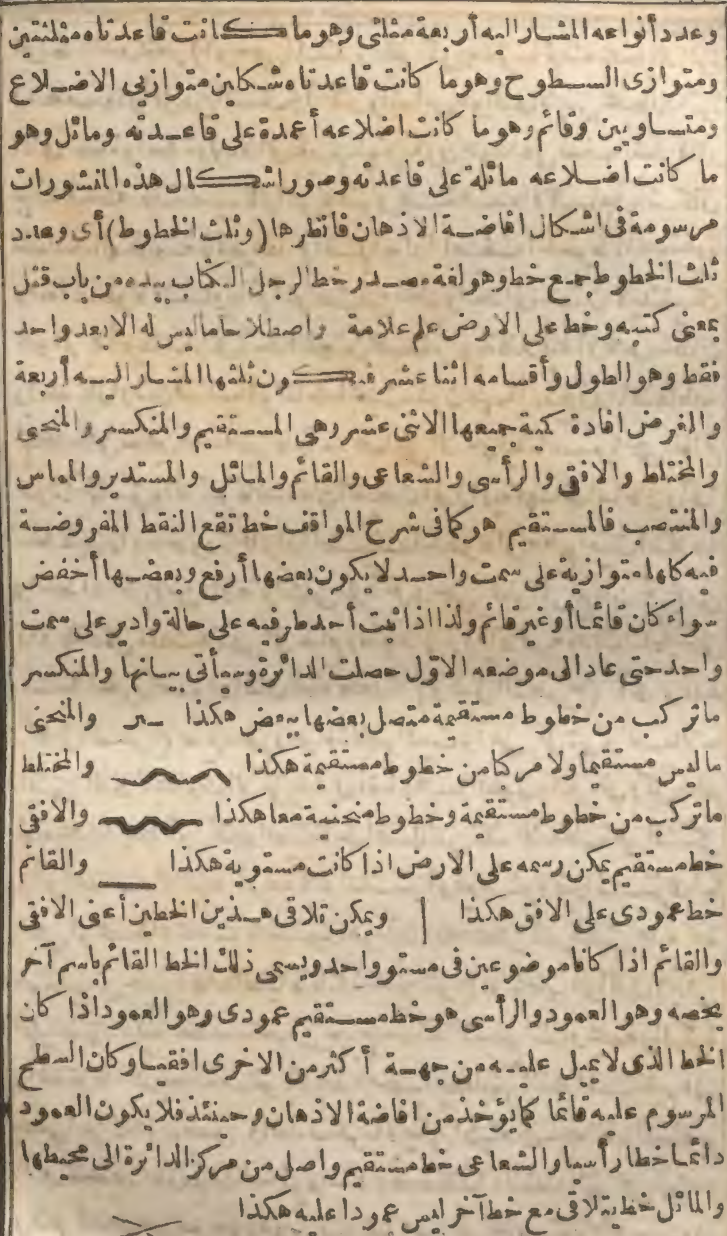 وعدد أنواعه المشار اليه أربعة مثلثى وهو ما كانت قاعدتاه مثلثتين
ومتوازى السطوح وهو ما كانت قاعدتاه شكلين متوازيى الاضلاع
ومتساويين وقائم وهو ما كانت اضلاعه أعمدة على قاعدته ومائل وهو
ما كانت اضلاعه مائلة على قاعدته وصور اشكال هذه المنشورات
مرسومة فى اشكال افاضة الاذهان فانظرها (وثلث الخطوط) أى وعدد
ثلث الخطوط جمع خط وهو لغة مصدر خط الرجل الكتاب بيده من باب قتل
بمعنى كتبه وخط على الارض علم علامة واصطلاحا ماليس له الابعد واحد
فقط وهو الطول وأقسامه اثنا عشر فيكون ثلثها المشار اليه أربعة
والغرض افادة كمية جميعها الاثنى عشر وهى المستقيم والمنكسر والمنحنى
والمختلط والافقى والرأسى والشعاعى والقائم والمائل والمستدير والمماس
والمنتصب فالمستقيم هو كما فى شرح المواقف خط تقع النقط المفروضة
فيه كلها متوازية على سمت واحد لا يكون بعضها أرفع وبعضها أخفض
سواء كان قائما أو غير قائم ولذا اذا ثبت أحد طرفيه على حالة وادير على سمت
واحد حتى عاد الى موضعه الاول حصلت الدائرة وسيأتى بيانها والمنكسر
ماتركب من خطوط مستقيمة متصل بعضها ببعض هكذا والمنحنى
ماليس مستقيما ولا مركبا من خطوط مستقيمة هكذا والمختلط
ماتركب من خطوط مستقيمة وخطوط منحنية معا هكذا والافقى
خط مستقيم يمكن رسمه على الارض اذا كانت مستوية هكذا والقائم
خط عمودى على الافق هكذا ويمكن تلاقى هذين الخطين أعنى الافقى
والقائم اذا كانا موضوعين فى مستو واحد ويسمى ذلك الخط القائم باسم آخر
يخصه وهو العمود والرأسى هو خط مستقيم عمودى وهو العمود اذا كان
الخط الذى لا يميل عليه من جهة أكثر من الاخرى افقيا وكان السطح
المرسوم عليه قائما كما يؤخذ من افاضة الاذهان وحينئذ فلا يكون العمود
دائما خطا رأسيا والشعاعى خط مستقيم واصل من مركز الدائرة الى محيطها
والمائل خط يتلاقى مع خط آخر ليس عمودا عليه هكذا